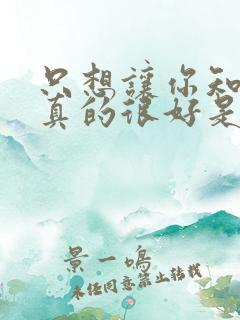 只想讓你知
真的很好是
景一鳴
未任同意禁止轉載